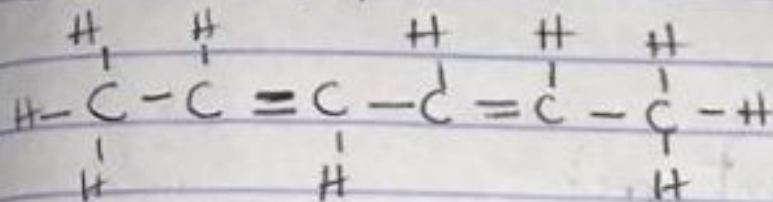 H H H H H
H - C - C = C - C = C - C - H
H H H